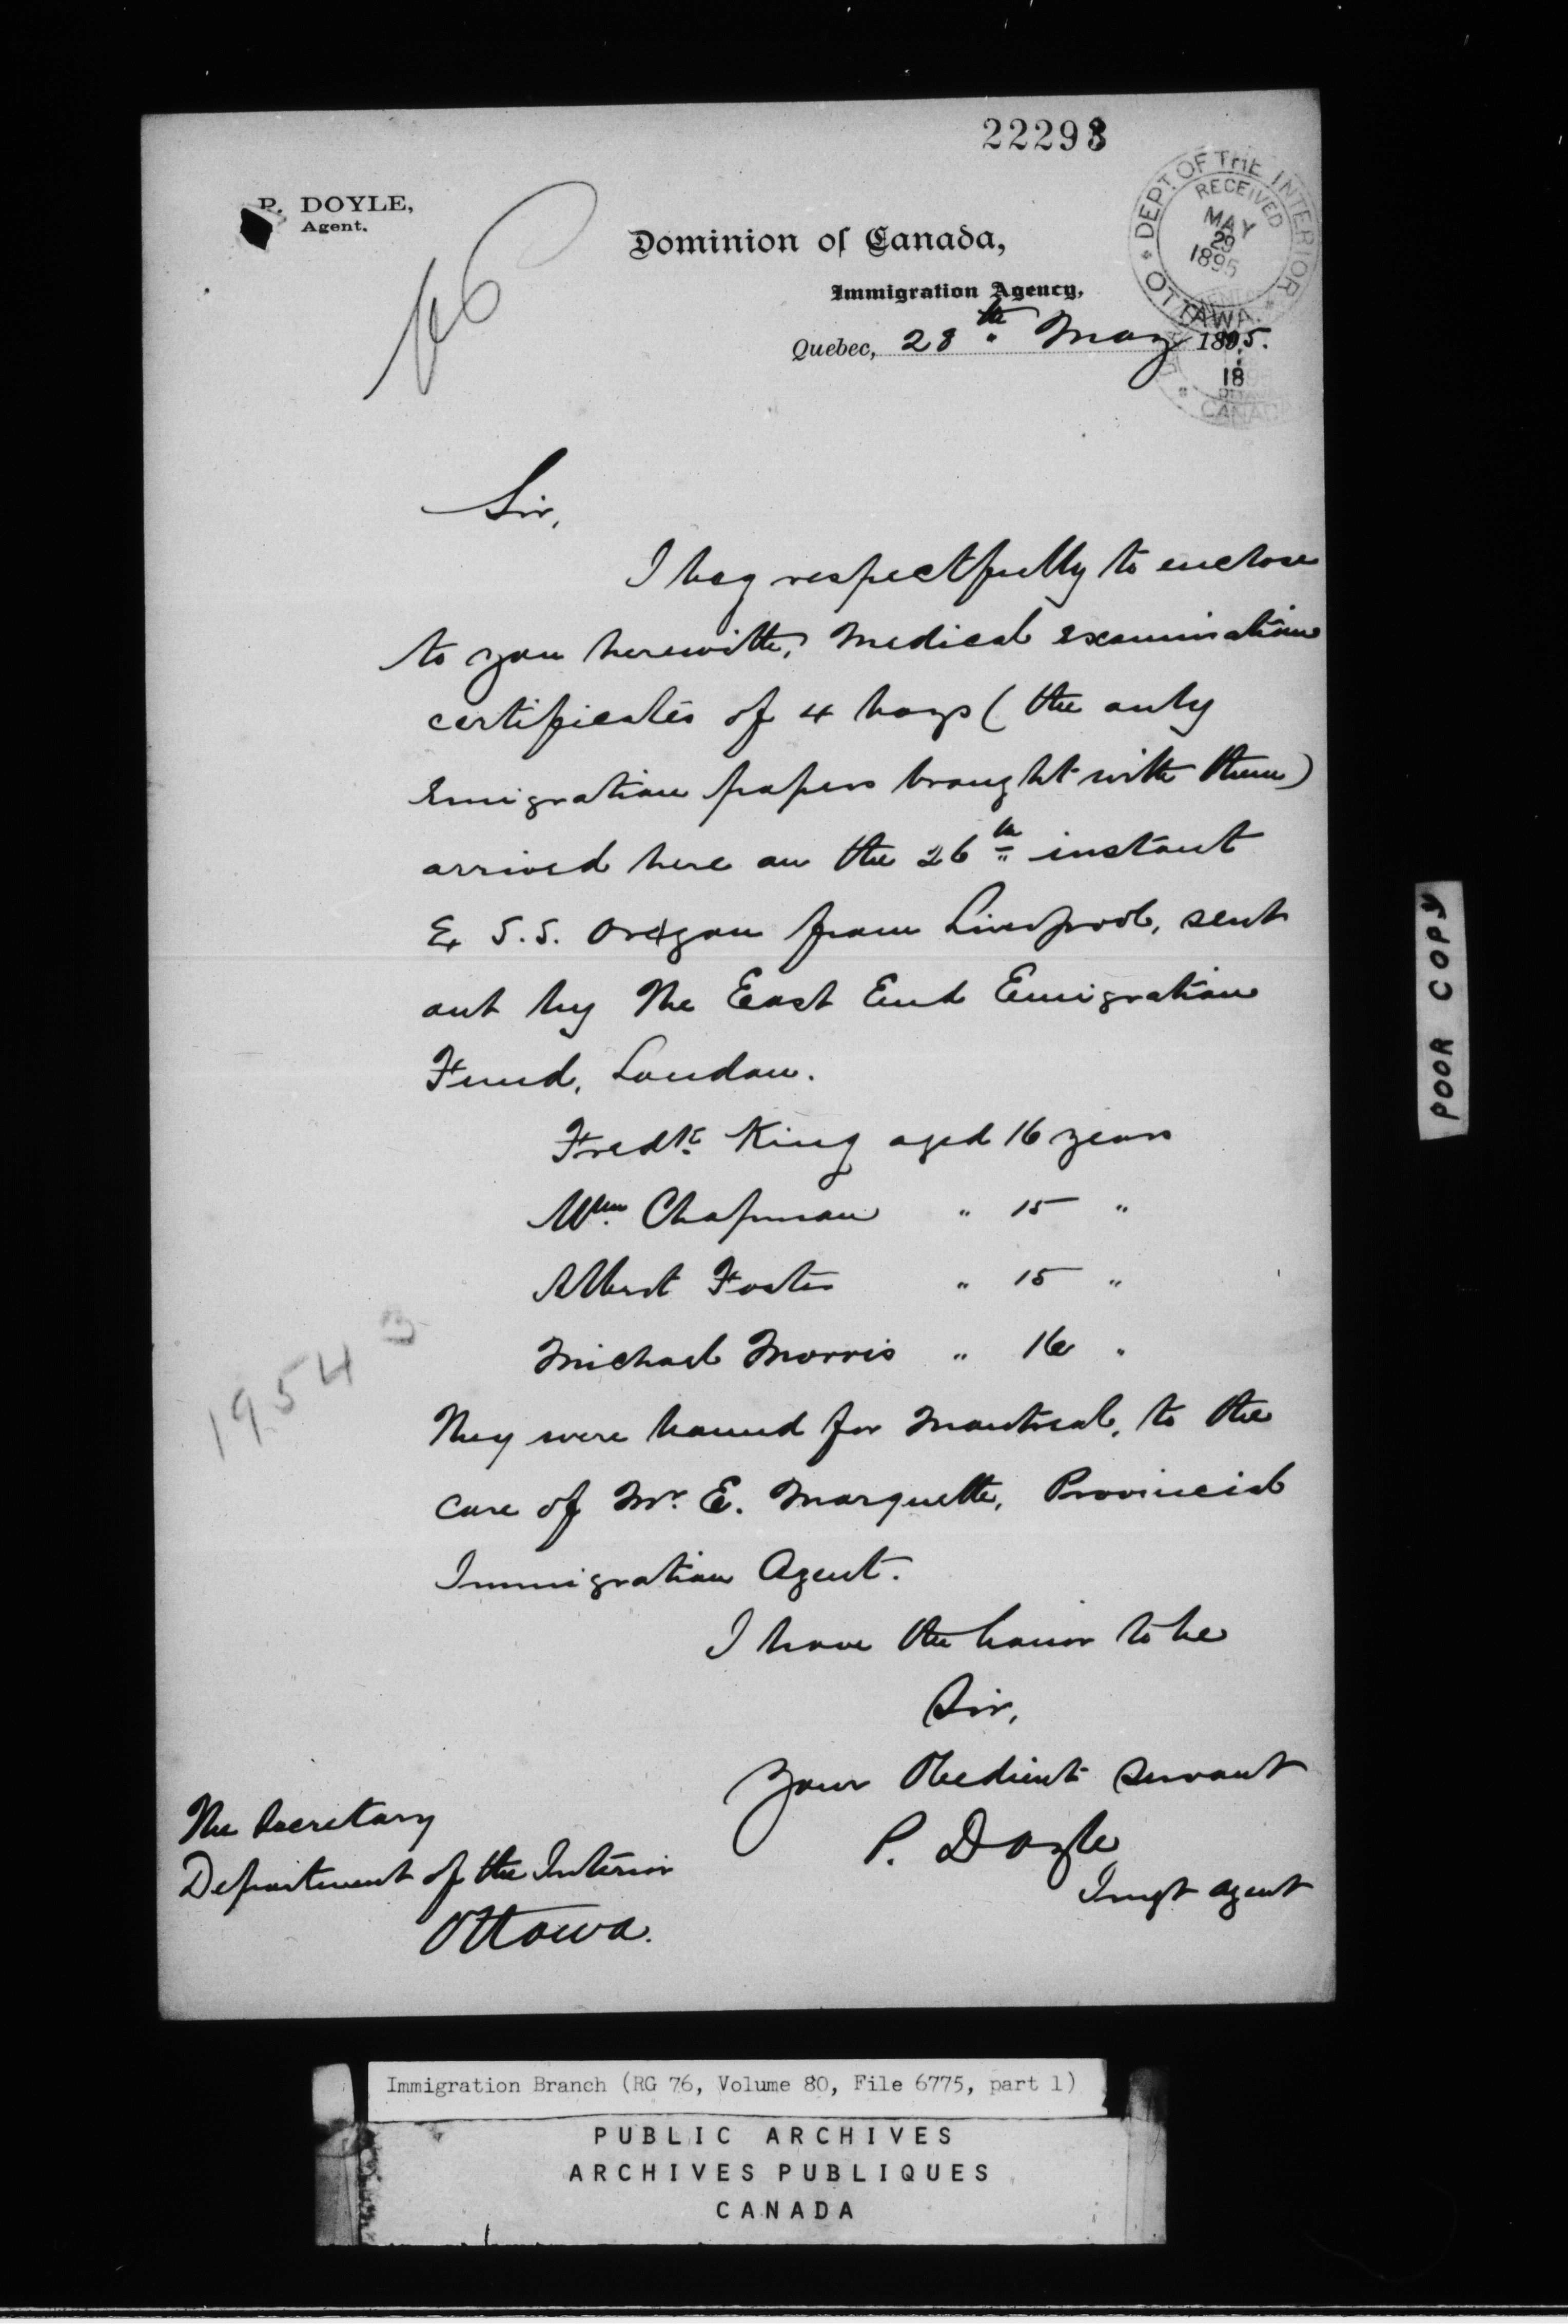 22293
P. DOYLE,
Agent.
DEPT. OF THE INTERIOR
RECEIVED
MAY
29
1895
OTTAWA.
Dominion of Canada,
Immigration Agency,
Quebec, 28th May 1895.
18
CANADA
Sir,
I beg respectfully to enclose
to you herewith, Medical examination
certificates of 4 boys (the only
Emigration papers brought with them)
arrived here on the 26th instant
Ex S.S. Oregon from Liverpool, sent
out by The East End Emigration
Fund, London.
Fredk King aged 16 years
Wm Chapman " 15 "
Albert Foster " 15 "
Michael Morris " 16 "
They were bound for Montreal, to the
care of Mr. E. Marquette, Provincial
Immigration Agent.
I have the honor to be
Sir,
Your Obedient Servant
P. Doyle
Imgt agent
The Secretary
Department of the Interior
Ottawa.
19543
POOR COPY
Immigration Branch (RG 76, Volume 80, File 6775, part 1)
PUBLIC ARCHIVES
ARCHIVES PUBLIQUES
CANADA